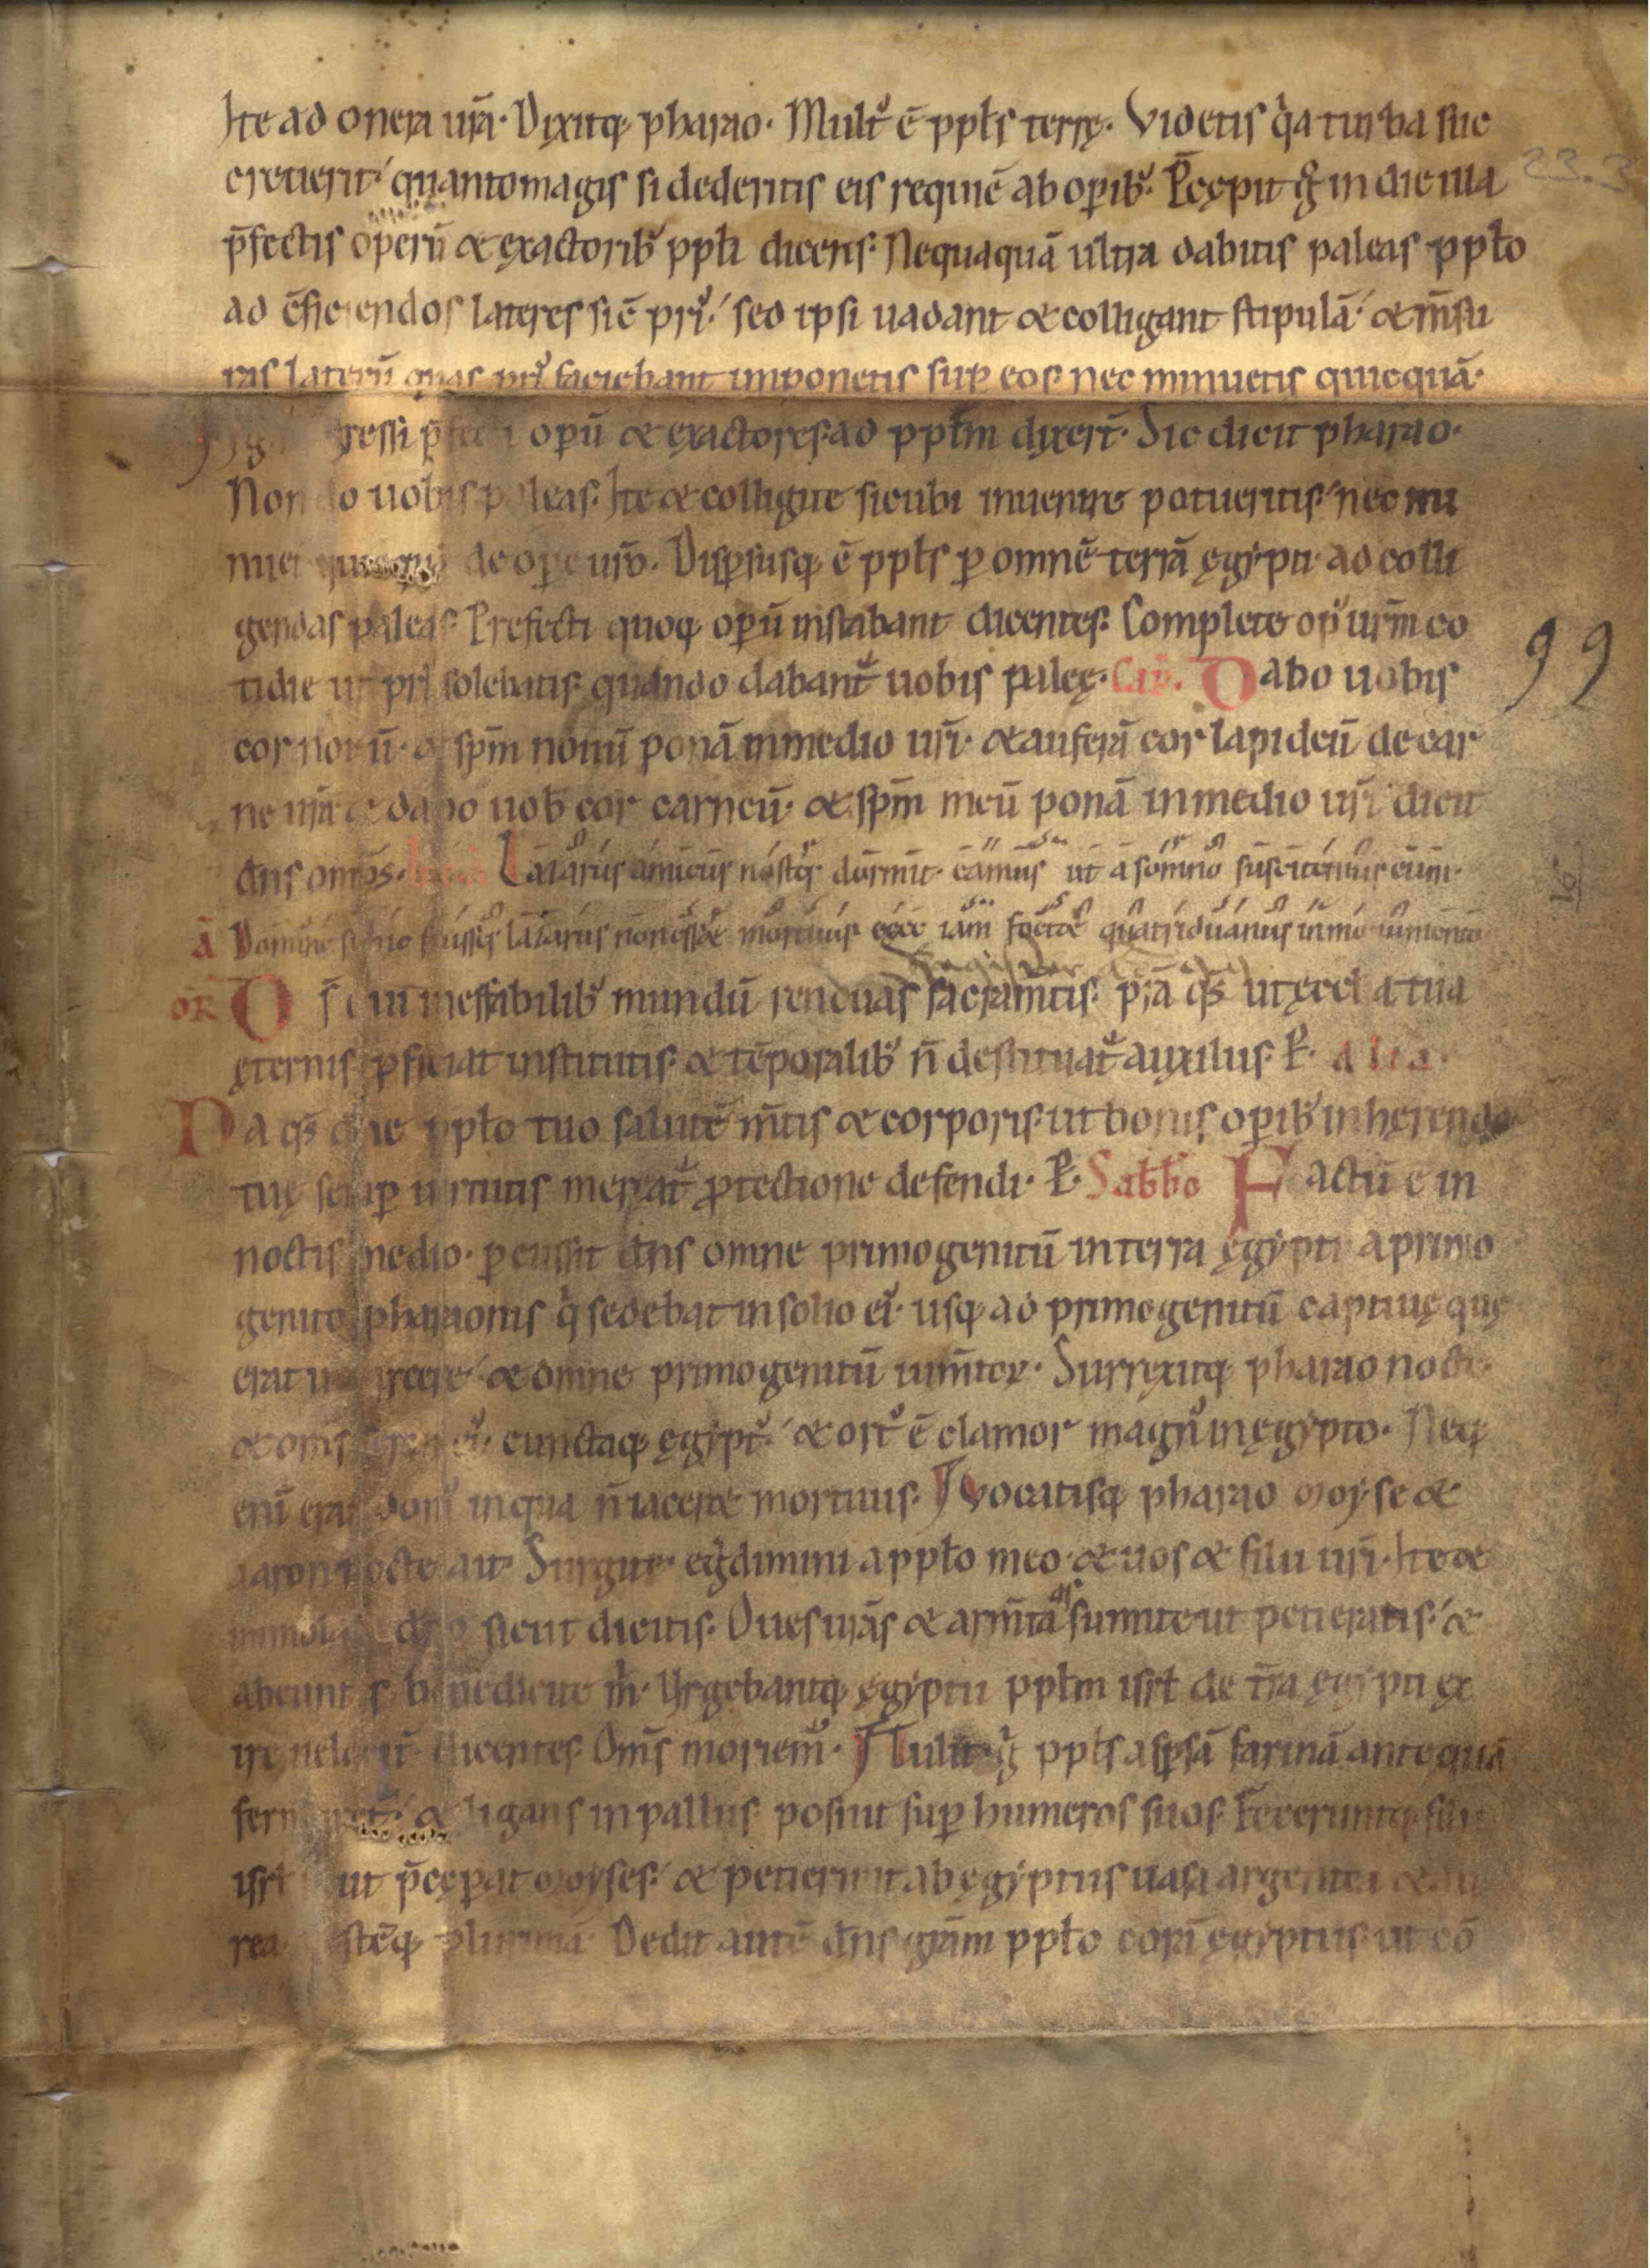 Ite ad onera ur̄a· Dixitq; pharao· Mult᷒ ē ppłs terrę· Videtis qͥa turba suc
creuerit quanto magis si dederitis eis requiē ab oꝑib᷒· P̄cępit gͦ in die illa
p̄fectis operū & exactorib᷒ ppłi dicens· Nequaquā ultra dabitis paleas ppło
ad c̄ficiendos lateres sic̄ pri᷒· sed ipsi uadant & colligant stipulā· & m̄su
ras laterū quas pri᷒ faciebant imponetis suꝑ eos nec minuetis quicquā·
gressi p̄fecti oꝑū & exactores ad ppłm dixer̄t· Sic dicit pharao·
Non do uobis paleas· Ite & colligite sicubi inuenire potueritis· nec mi
nuet de oꝑe ur̄o· Disꝑsusq; ē ppłs ꝑ omnē terrā ęgypti ad colli
gendas paleas· Prefecti quoq; oꝑū instabant dicentes· Complete op᷒ ur̄m co
tidie ut pri᷒ solebatis quando dabant᷒ uobis palę· Cap̄. Dabo uobis
cor nouū· & sp̄m nouū ponā in medio ur̄i· & auferā cor lapideū de car
ne ur̄a & dabo uob̄ cor carneū· & sp̄m meū ponā in medio ur̄i dicit
dn̄s om̄ps· Lazarus amicus noster dormit· eamus ut a somno suscitemus eum·
ā Domine si hic fuisses lazarus non esset mortuus ecce iam foetet quatriduanus in monumento
OR̄ D̄s qui ineffabilib᷒ mundū renouas sacram̄tis· p̄ra qs̄ ut ęccl̄a tua
ęternis ꝓficiat institutis· & tēporalib᷒ n̄ destituat᷒ auxiliis· P· alia·
Da qs̄ dn̄e ppło tuo salutē m̄tis & corporis· ut bonis oꝑib᷒ inhęrendo
tuę semꝑ uirtutis mereat᷒ ꝓtectione defendi· P· Sabb̄o Factū ē in
noctis medio· ꝑcussit dn̄s omne primogenitū in terra ęgypti a primo
genito pharaonis qͥ sedebat in solio ei᷒· usq; ad primogenitū captiuę quę
erat in carcere· & omne primogenitū ium̄toꝝ· Surrexitq; pharao nocte·
& om̄s serui ei᷒· cunctaq; ęgypt᷒· & ort᷒ ē clamor magn᷒ in ęgypto· Neq;
eni̅ erat dom᷒ in qua n̄ iaceret mortuus· Vocatisq; pharao moyse &
aaron nocte ait· Surgite· egͬdimini a ppło meo· & uos & filii ur̄i· Ite &
immolate dn̄o sicut dicitis· Oues ur̄as & arm̄ta sumite ut petieratis· &
abeuntes benedicite m̄· Vrgebantq; ęgyptii ppłm isrł de t̄ra ęgypti ex
ire uelociť dicentes· Om̄s moriem᷒· Tulit gͦ ppłs asꝑsā farinā antequā
fermtaret᷒· & ligans in palliis posuit suꝑ humeros suos· Feceruntq; filii
isrł ut p̄cęꝑat moyses· & petierunt ab ęgyptiis uasa argentea & au
rea uestēq; plurimā· Dedit autē dn̄s gr̄am ppło corā ęgyptiis· ut cō
99
23.3